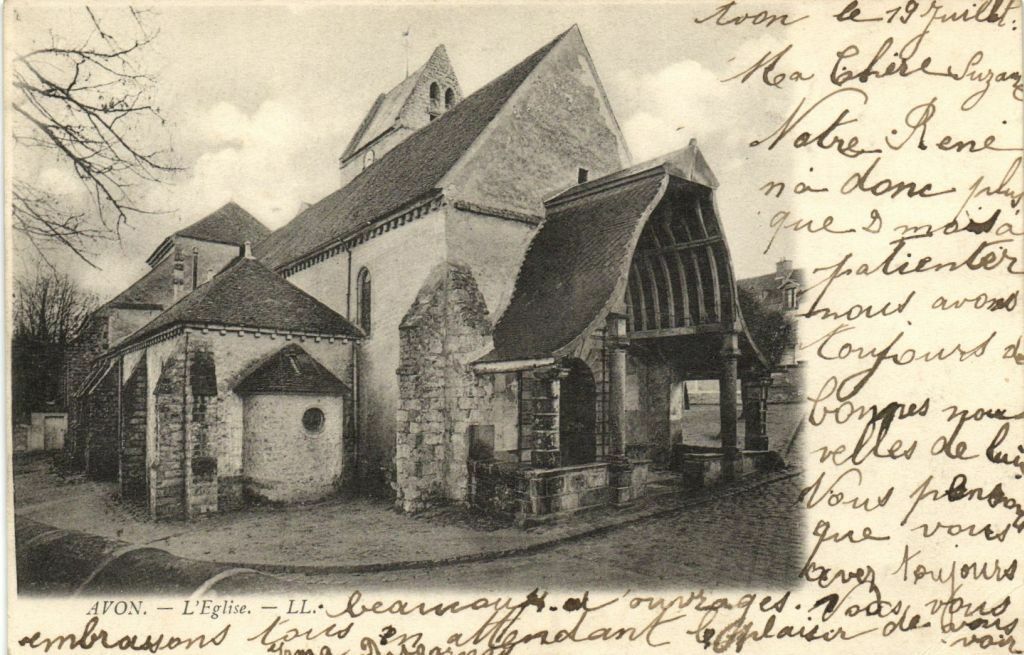 Avon le 19 Juillet.
Ma Chère Suzane
Notre René
n'a donc plus
que 2 mois à
patienter
nous avons
toujours de
bonnes nou
velles de lui
Nous pensons
que vous
avez toujours
beaucoup d'ouvrages. Nous vous
embrassons tous en attendant le plaisir de vous
voir
AVON. — L'Eglise. — LL.